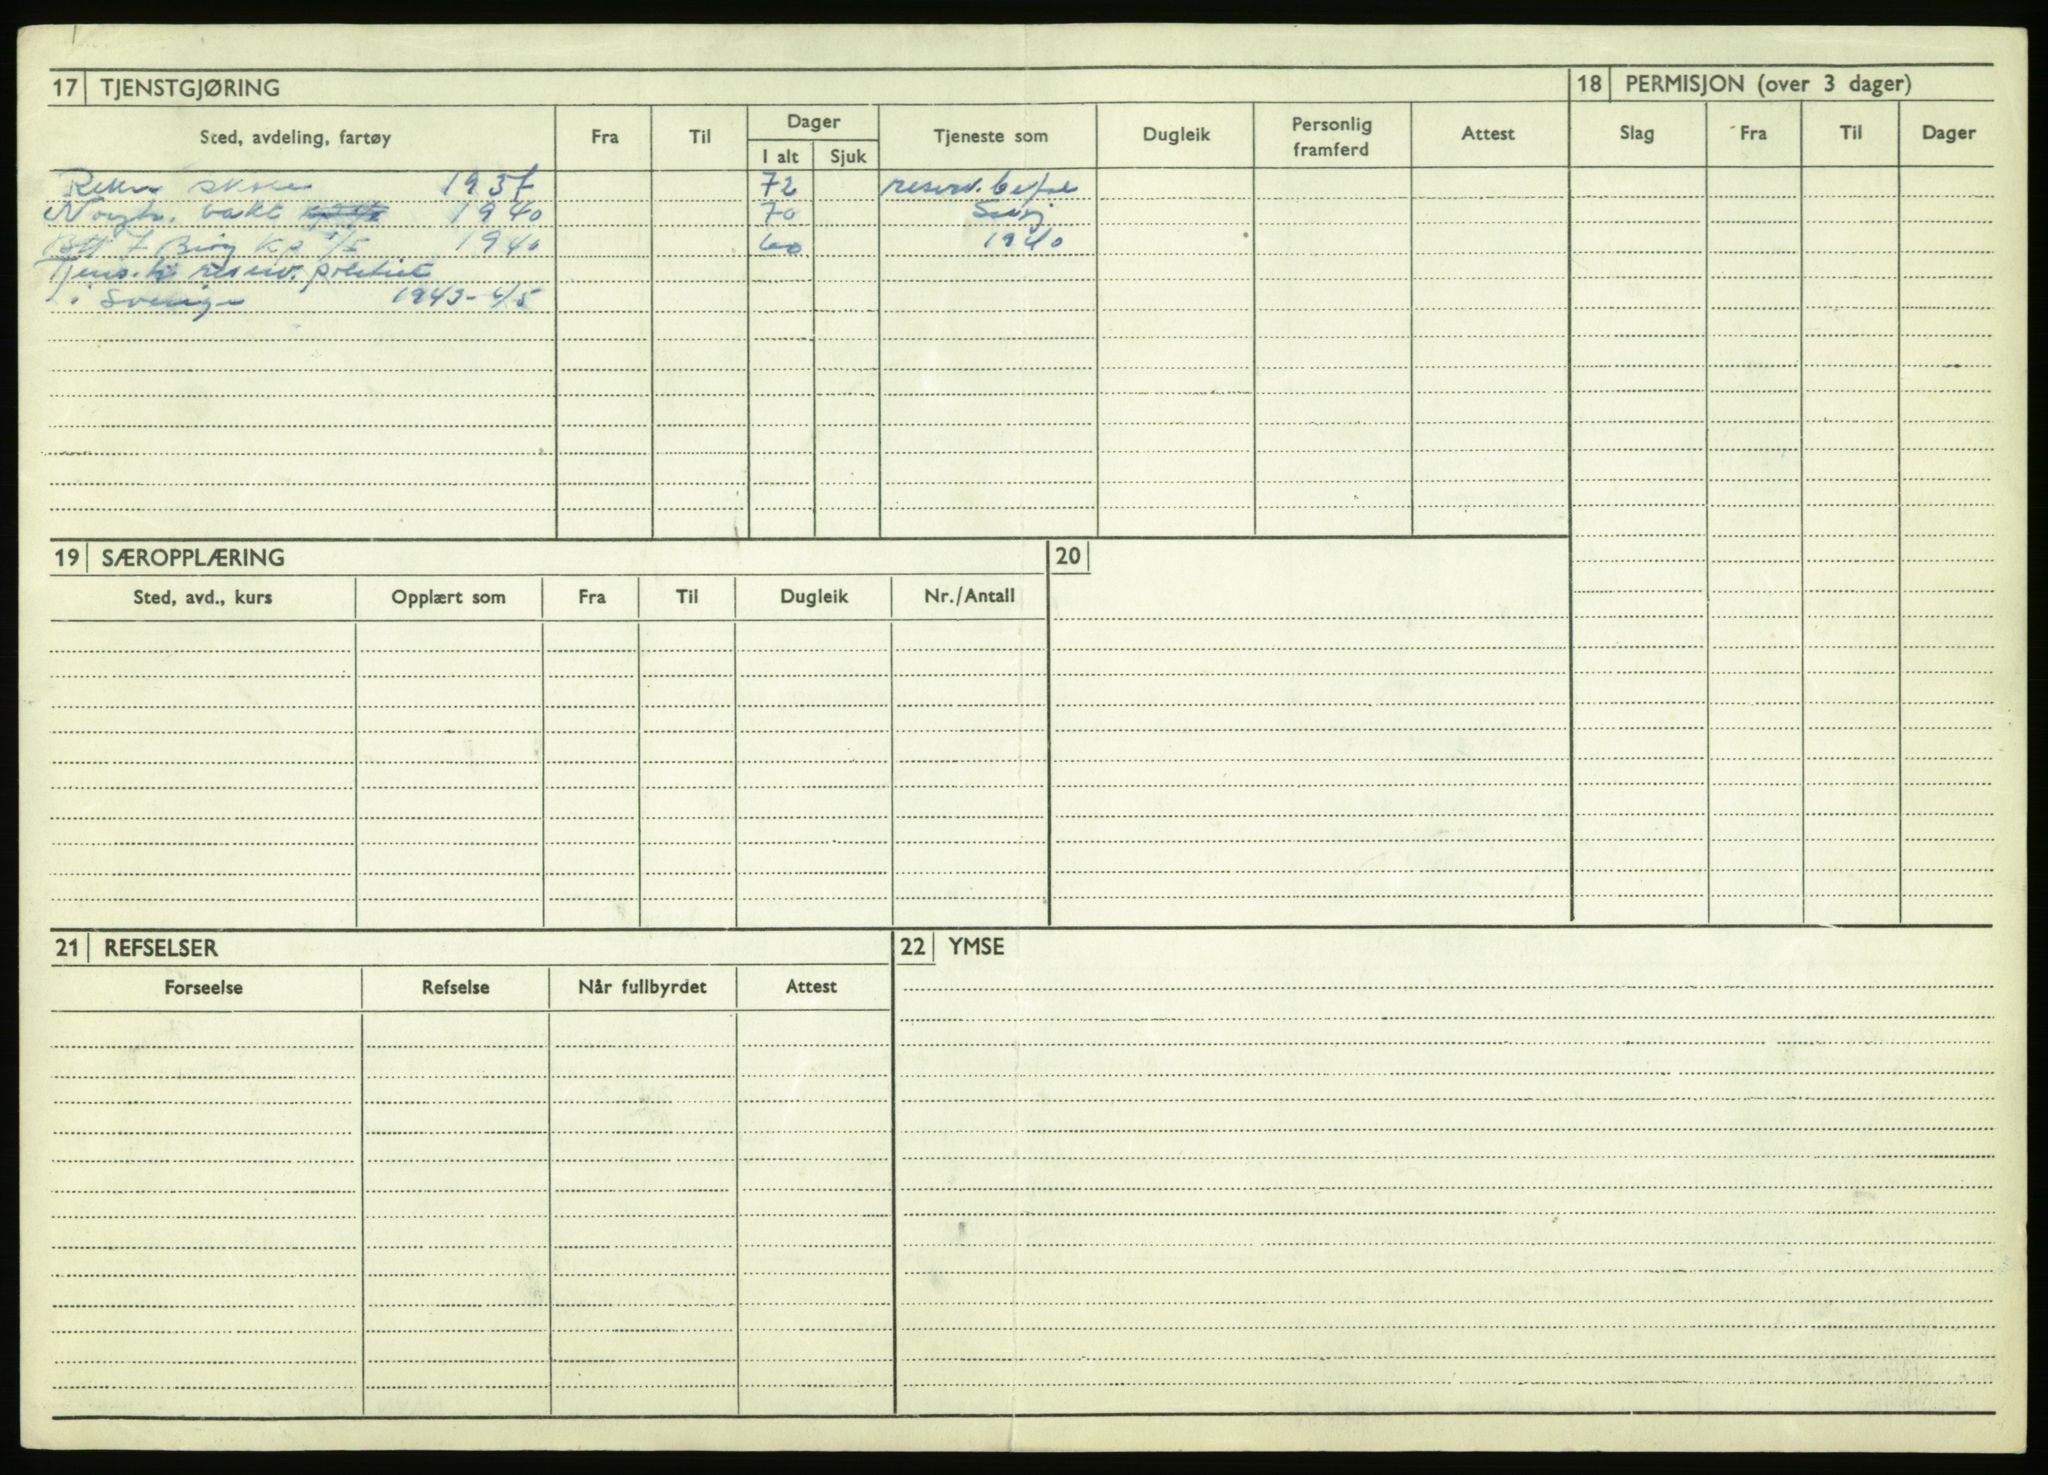 17 TJENSTGJØRING
Sted, avdeling, fartøy Fra Til Dager Tjeneste som Dugleik Personlig framferd Attest
I alt Sjuk
1937 72 reserv.
Nøytr. vakt 1940 70 Serg
1940 60 1940
Tjens. reserv. politiet
i Sverige 1943-45
18 PERMISJON (over 3 dager)
Slag Fra Til Dager
19 SÆROPPLÆRING
Sted, avd., kurs Opplært som Fra Til Dugleik Nr./Antall
20
21 REFSELSER
Forseelse Refselse Når fullbyrdet Attest
22 YMSE